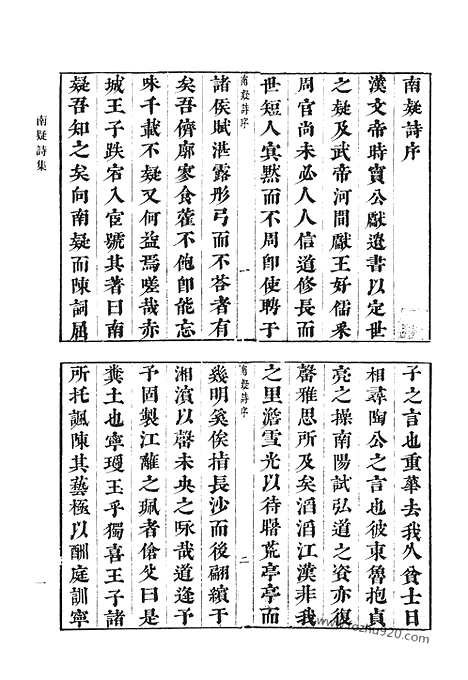 南疑詩集
南疑詩序
漢文帝時竇公獻遺書以定世
之疑及武帝河間獻王好儒釆
周官尚未必人人信道修長而
世短人寘默而不周卽使聘于
南疑詩序
一
諸侯賦湛露彤弓而不荅者有
矣吾儕廓家食藿不飽卽能忘
味千載不疑又何益焉嗟哉赤
城王子跌宕入宦號其著曰南
疑吾知之矣向南疑而陳詞屈
子之言也重華去我久貧士日
相尋陶公之言也彼東魯抱貞
亮之操南陽試弘道之資亦復
馨雅思所及矣滔滔江漢非我
之里澹雪光以待曙荒亭亭而
南疑詩序
二
幾明奚俟掯長沙而後翩繽于
湘濱以罄未央之咏哉道逢予
予固製江蘺之珮者傖父曰是
糞土也寧瑾玉乎獨喜王子諸
所托諷陳其藝極以酬庭訓寧
一
www.fozhu920.com